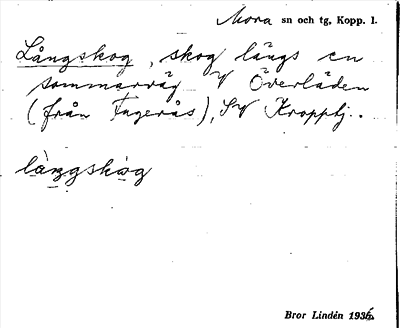 Mora sn och tg, Kopp. l.
Långskog, skog längs en
sommarväg V Överläden
(från Fagerås), SV Kroppbj.
làŋgskòg
Bror Lindén 1935